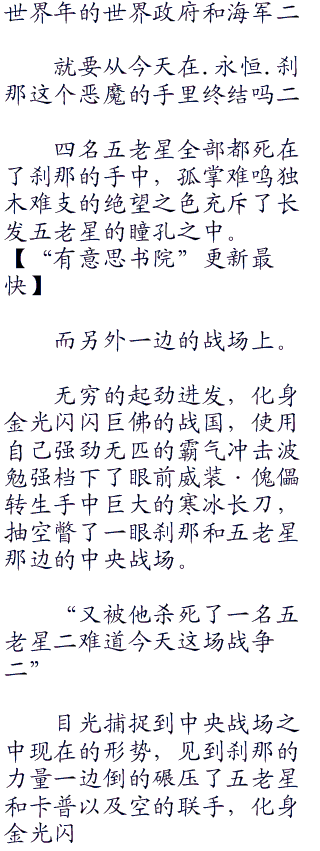 世界年的世界政府和海军二
就要从今天在.永恒.刹
那这个恶魔的手里终结吗二
四名五老星全部都死在
了刹那的手中，孤掌难鸣独
木难支的绝望之色充斥了长
发五老星的瞳孔之中。
【“有意思书院”更新最
快】
而另外一边的战场上。
无穷的起劲迸发，化身
金光闪闪巨佛的战国，使用
自己强劲无匹的霸气冲击波
勉强档下了眼前威装·傀儡
转生手中巨大的寒冰长刀，
抽空瞥了一眼刹那和五老星
那边的中央战场。
“又被他杀死了一名五
老星二难道今天这场战争
二”
目光捕捉到中央战场之
中现在的形势，见到刹那的
力量一边倒的碾压了五老星
和卡普以及空的联手，化身
金光闪